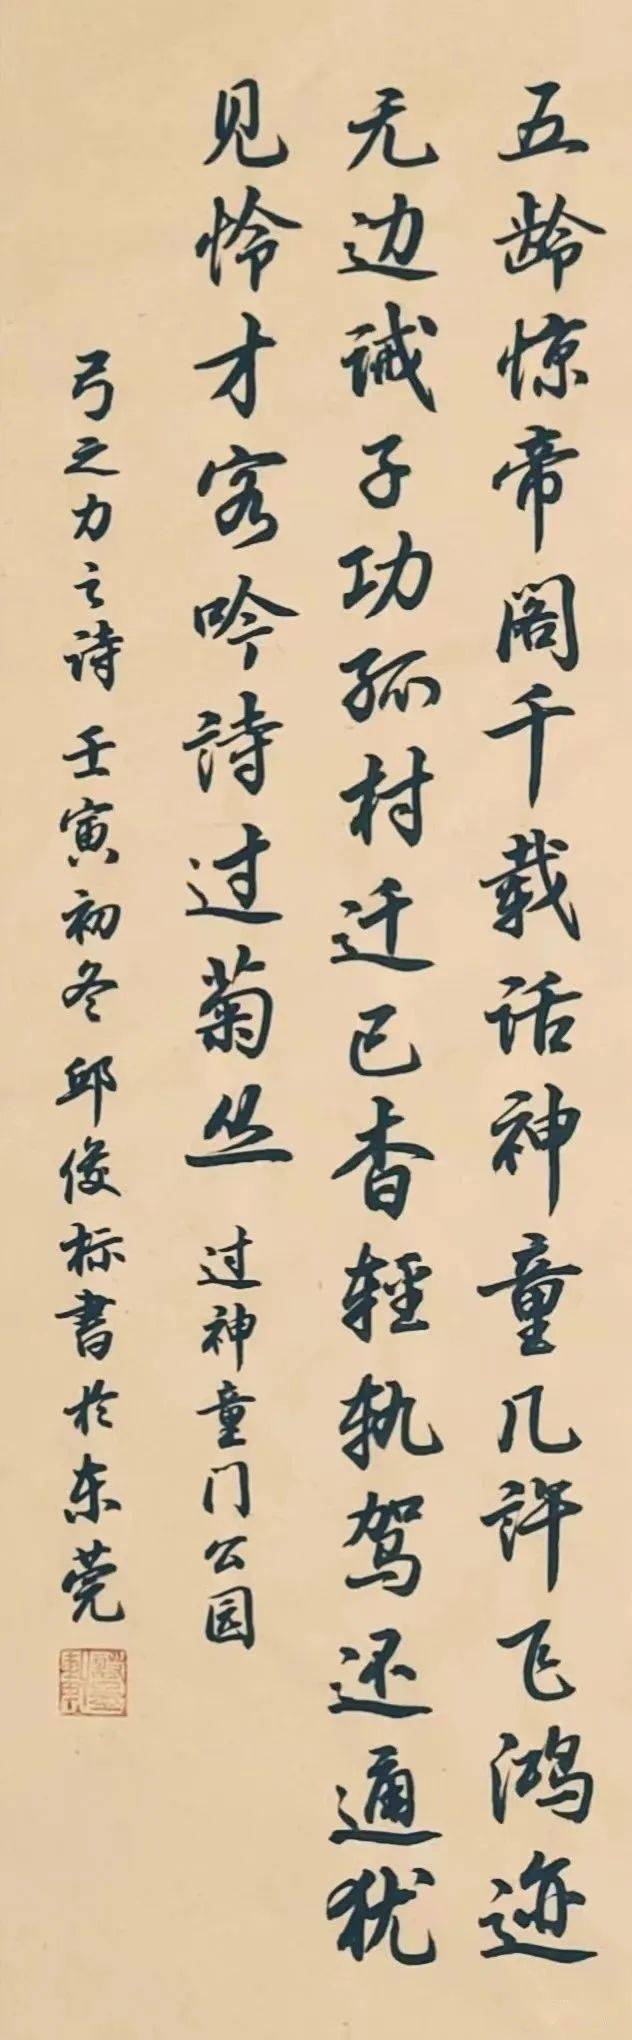 五龄惊帝阁千载话神童几许飞鸿迹
无边诫子功孤村迁已杳轻轨驾还通犹
见怜才客吟诗过菊丛 过神童门公园
弓之力之诗 壬寅初冬邱俊标书於东莞